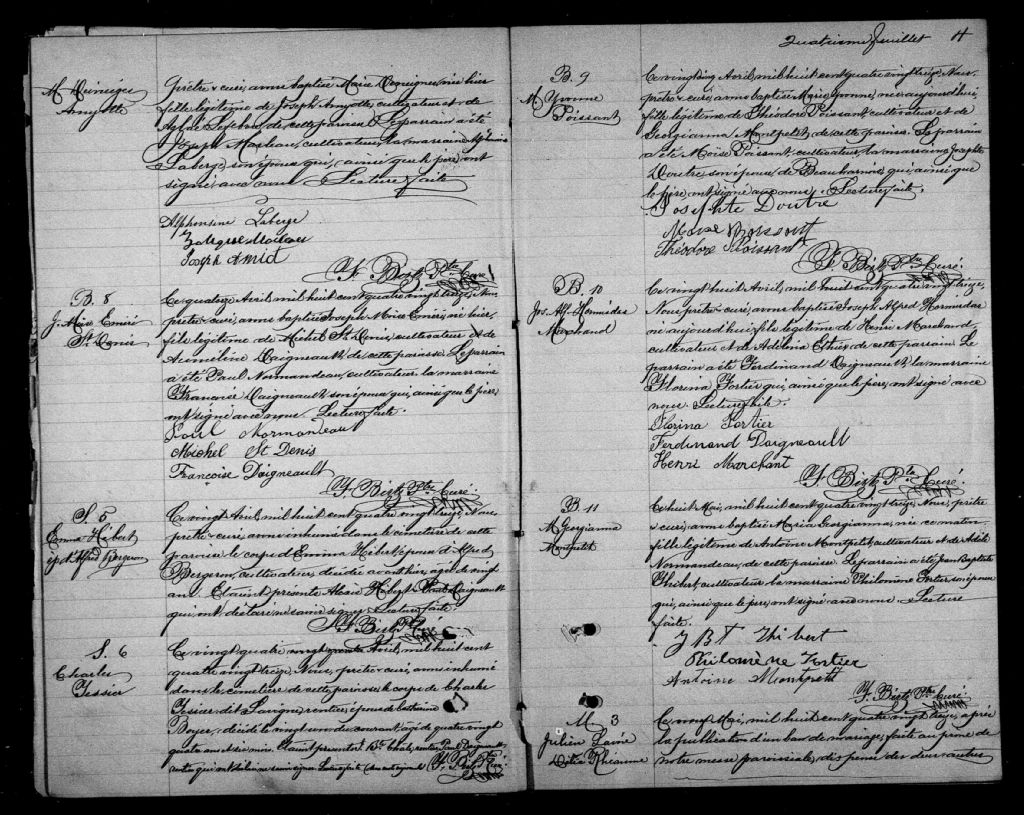 M. Dominique
Amyotte
Prêtre & curé, avons baptisé Marie née hier
fille légitime de Joseph Amyotte, cultivateur et de
Lefebvre de cette paroisse. Le parrain a été
Joseph cultivateur, la marraine Alphonsine
Laberge, son épouse qui, ainsi que le père, ont
signé avec nous. Lecture faite
Alphonsine Laberge
Joseph Amiot
F. Ptre Curé
B. 8
J. Moïse Emiré
St Denis
Ce quatorze Avril, mil huit cent quatre vingt treize, Nous
prêtre & curé, avons baptisé Joseph Moïse né hier,
fils légitime de Michel St Denis, cultivateur et de
Daigneault, de cette paroisse. Le parrain
a été Paul Normandeau, cultivateur la marraine
Françoise Daigneault son épouse qui, ainsi que le père,
ont signé avec nous. Lecture faite.
Paul Normandeau
Michel St Denis
Françoise Daigneault
F. Ptre Curé
S. 5
Emma Hébert
ép. d'Alfred Bergeron
Ce vingt Avril, mil huit cent quatre vingt treize, Nous
prêtre & curé, avons inhumé dans le cimetière de cette
paroisse le corps d'Emma Hébert, épouse d'Alfred
Bergeron, cultivateur, décédée avant hier, âgée de vingt
ans. Etaient présents Hébert & Paul Daigneault
qui ont déclaré ne savoir signer. Lecture faite
F. Ptre Curé
S. 6
Charles
Tessier
Ce vingt quatre Avril, mil huit cent
quatre vingt treize, Nous, prêtre & curé, avons inhumé
dans le cimetière de cette paroisse le corps de Charles
Tessier dit Lavigne, rentier, époux de
Boyer, décédé le vingt un du courant, âgé de quatre vingt
quatre ans et mois. Etaient présents rentier, Paul Daigneault
rentier qui ont déclaré ne savoir signer. Lecture faite
F. Ptre Curé
Quatrième feuillet 4
B. 9
M. Yvonne
Poissant
Ce vingt cinq Avril, mil huit cent quatre vingt treize, Nous
prêtre & curé, avons baptisé Marie Yvonne, née aujourd'hui,
fille légitime de Théodore Poissant, cultivateur et de
Georgianna Montpetit, de cette paroisse. Le parrain
a été Moïse Poissant, cultivateur, la marraine Josephte
Doutre, son épouse, de Beauharnois, qui, ainsi que
le père, ont signé avec nous. Lecture faite.
Josephte Doutre
Moïse Poissant
Théodore Poissant
F. Ptre Curé
B. 10
Jos. Alf. Hormisdas
Marchand
Ce vingt huit Avril, mil huit cent quatre vingt treize,
Nous prêtre & curé, avons baptisé Joseph Alfred Hormisdas
né aujourd'hui, fils légitime de Henri Marchand,
cultivateur et de Adélina Ethier, de cette paroisse. Le
parrain a été Ferdinand Daigneault, la marraine
Florina Fortier qui, ainsi que le père, ont signé avec
nous. Lecture faite.
Florina Fortier
Ferdinand Daigneault
Henri Marchant
F. Ptre Curé
B. 11
M. Georgianna
Montpetit
Ce huit Mai, mil huit cent quatre vingt treize, Nous, prêtre
& curé, avons baptisé Marie Georgianna, née ce matin
fille légitime de Antoine Montpetit, cultivateur et de
Normandeau, de cette paroisse. Le parrain a été Jean Baptiste
Thibert, cultivateur, la marraine Philomène Fortier son épouse
qui, ainsi que le père, ont signé avec nous. Lecture
faite.
J B T Thibert
Philomène Fortier
Antoine Montpetit
F. Ptre Curé
M. 3
Julien Lainé
Ce neuf Mai, mil huit cent quatre vingt treize, après
la publication d'un ban de mariage, faite au prône de
notre messe paroissiale, dispense des deux autres